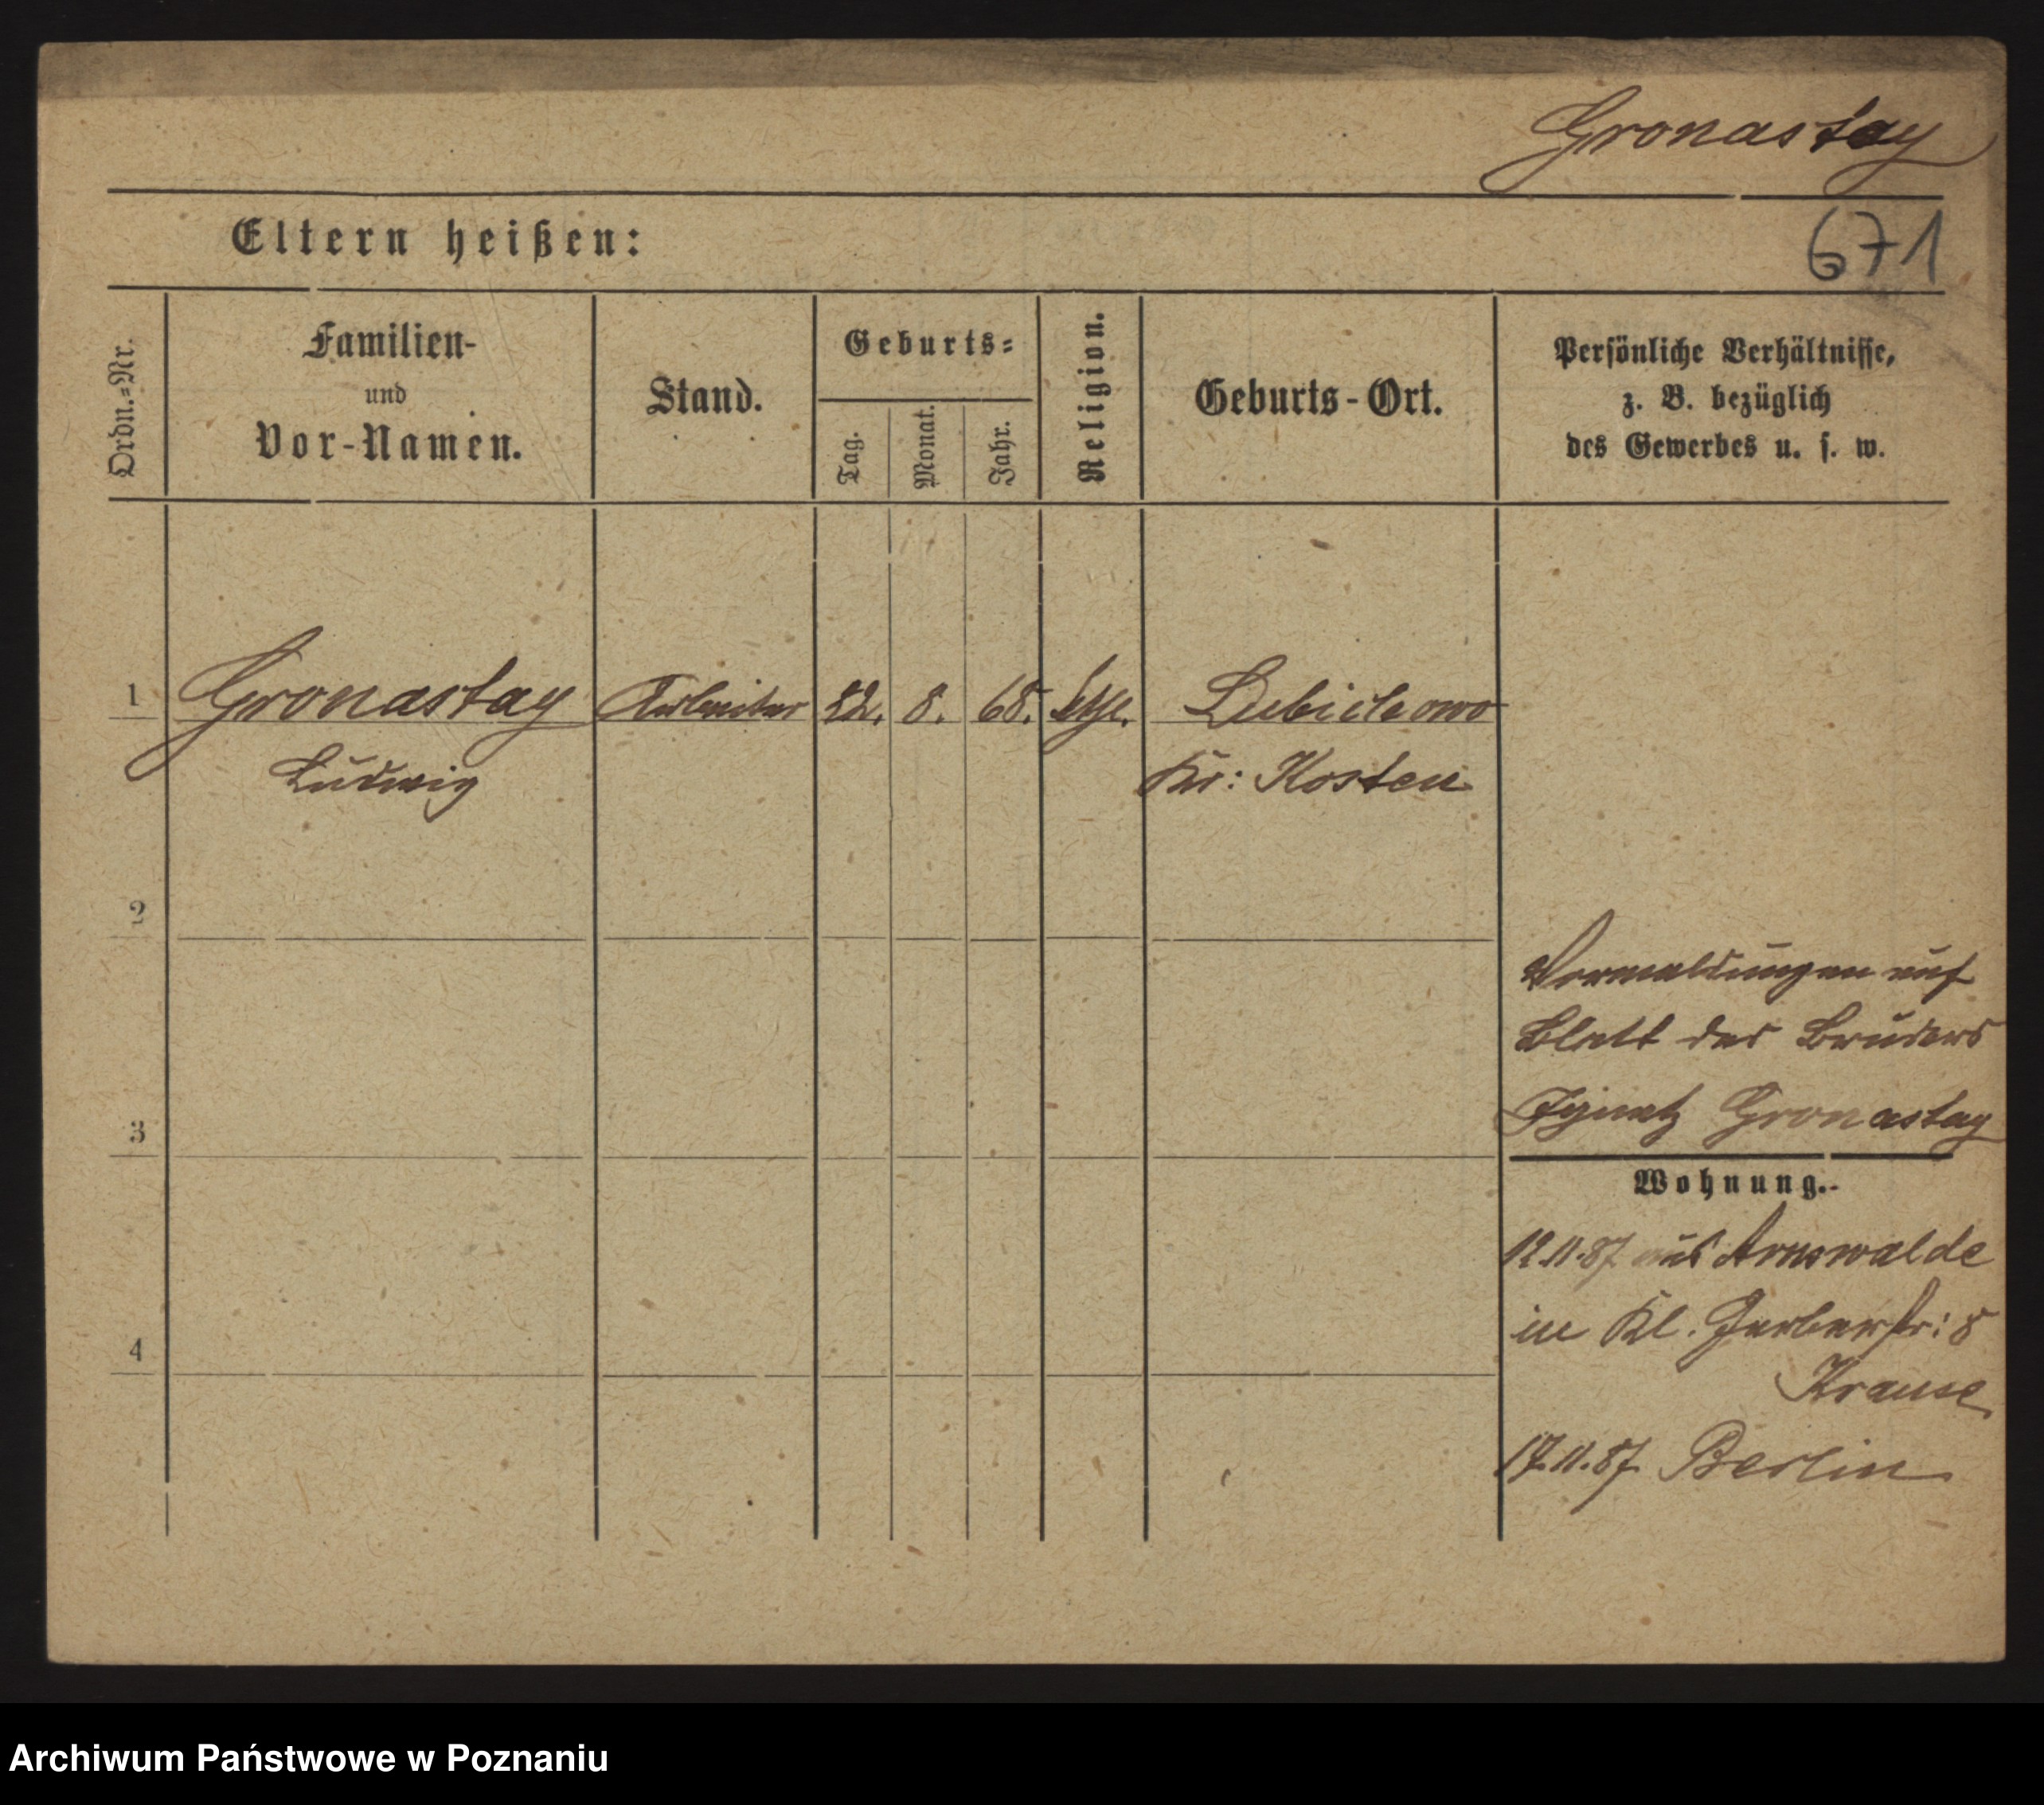 Gronastay
671
Eltern heißen:
Ordn.=Nr.
Familien-
und
Vor-Namen.
Stand.
Geburts=
Tag.
Monat.
Jahr.
Religion.
Geburts-Ort.
Persönliche Verhältnisse,
z. B. bezüglich
des Gewerbes u. s. w.
1 Gronastay Arbeiter 8. 68.
Ludwig Kr: Kosten
2
Vormeldungen auf
Blatt des Bruders
3 Ignatz Gronastay
Wohnung.
aus Arnswalde
in Kl. Gerberstr: 8
4
Krause
17.11.87. Berlin
Archiwum Państwowe w Poznaniu